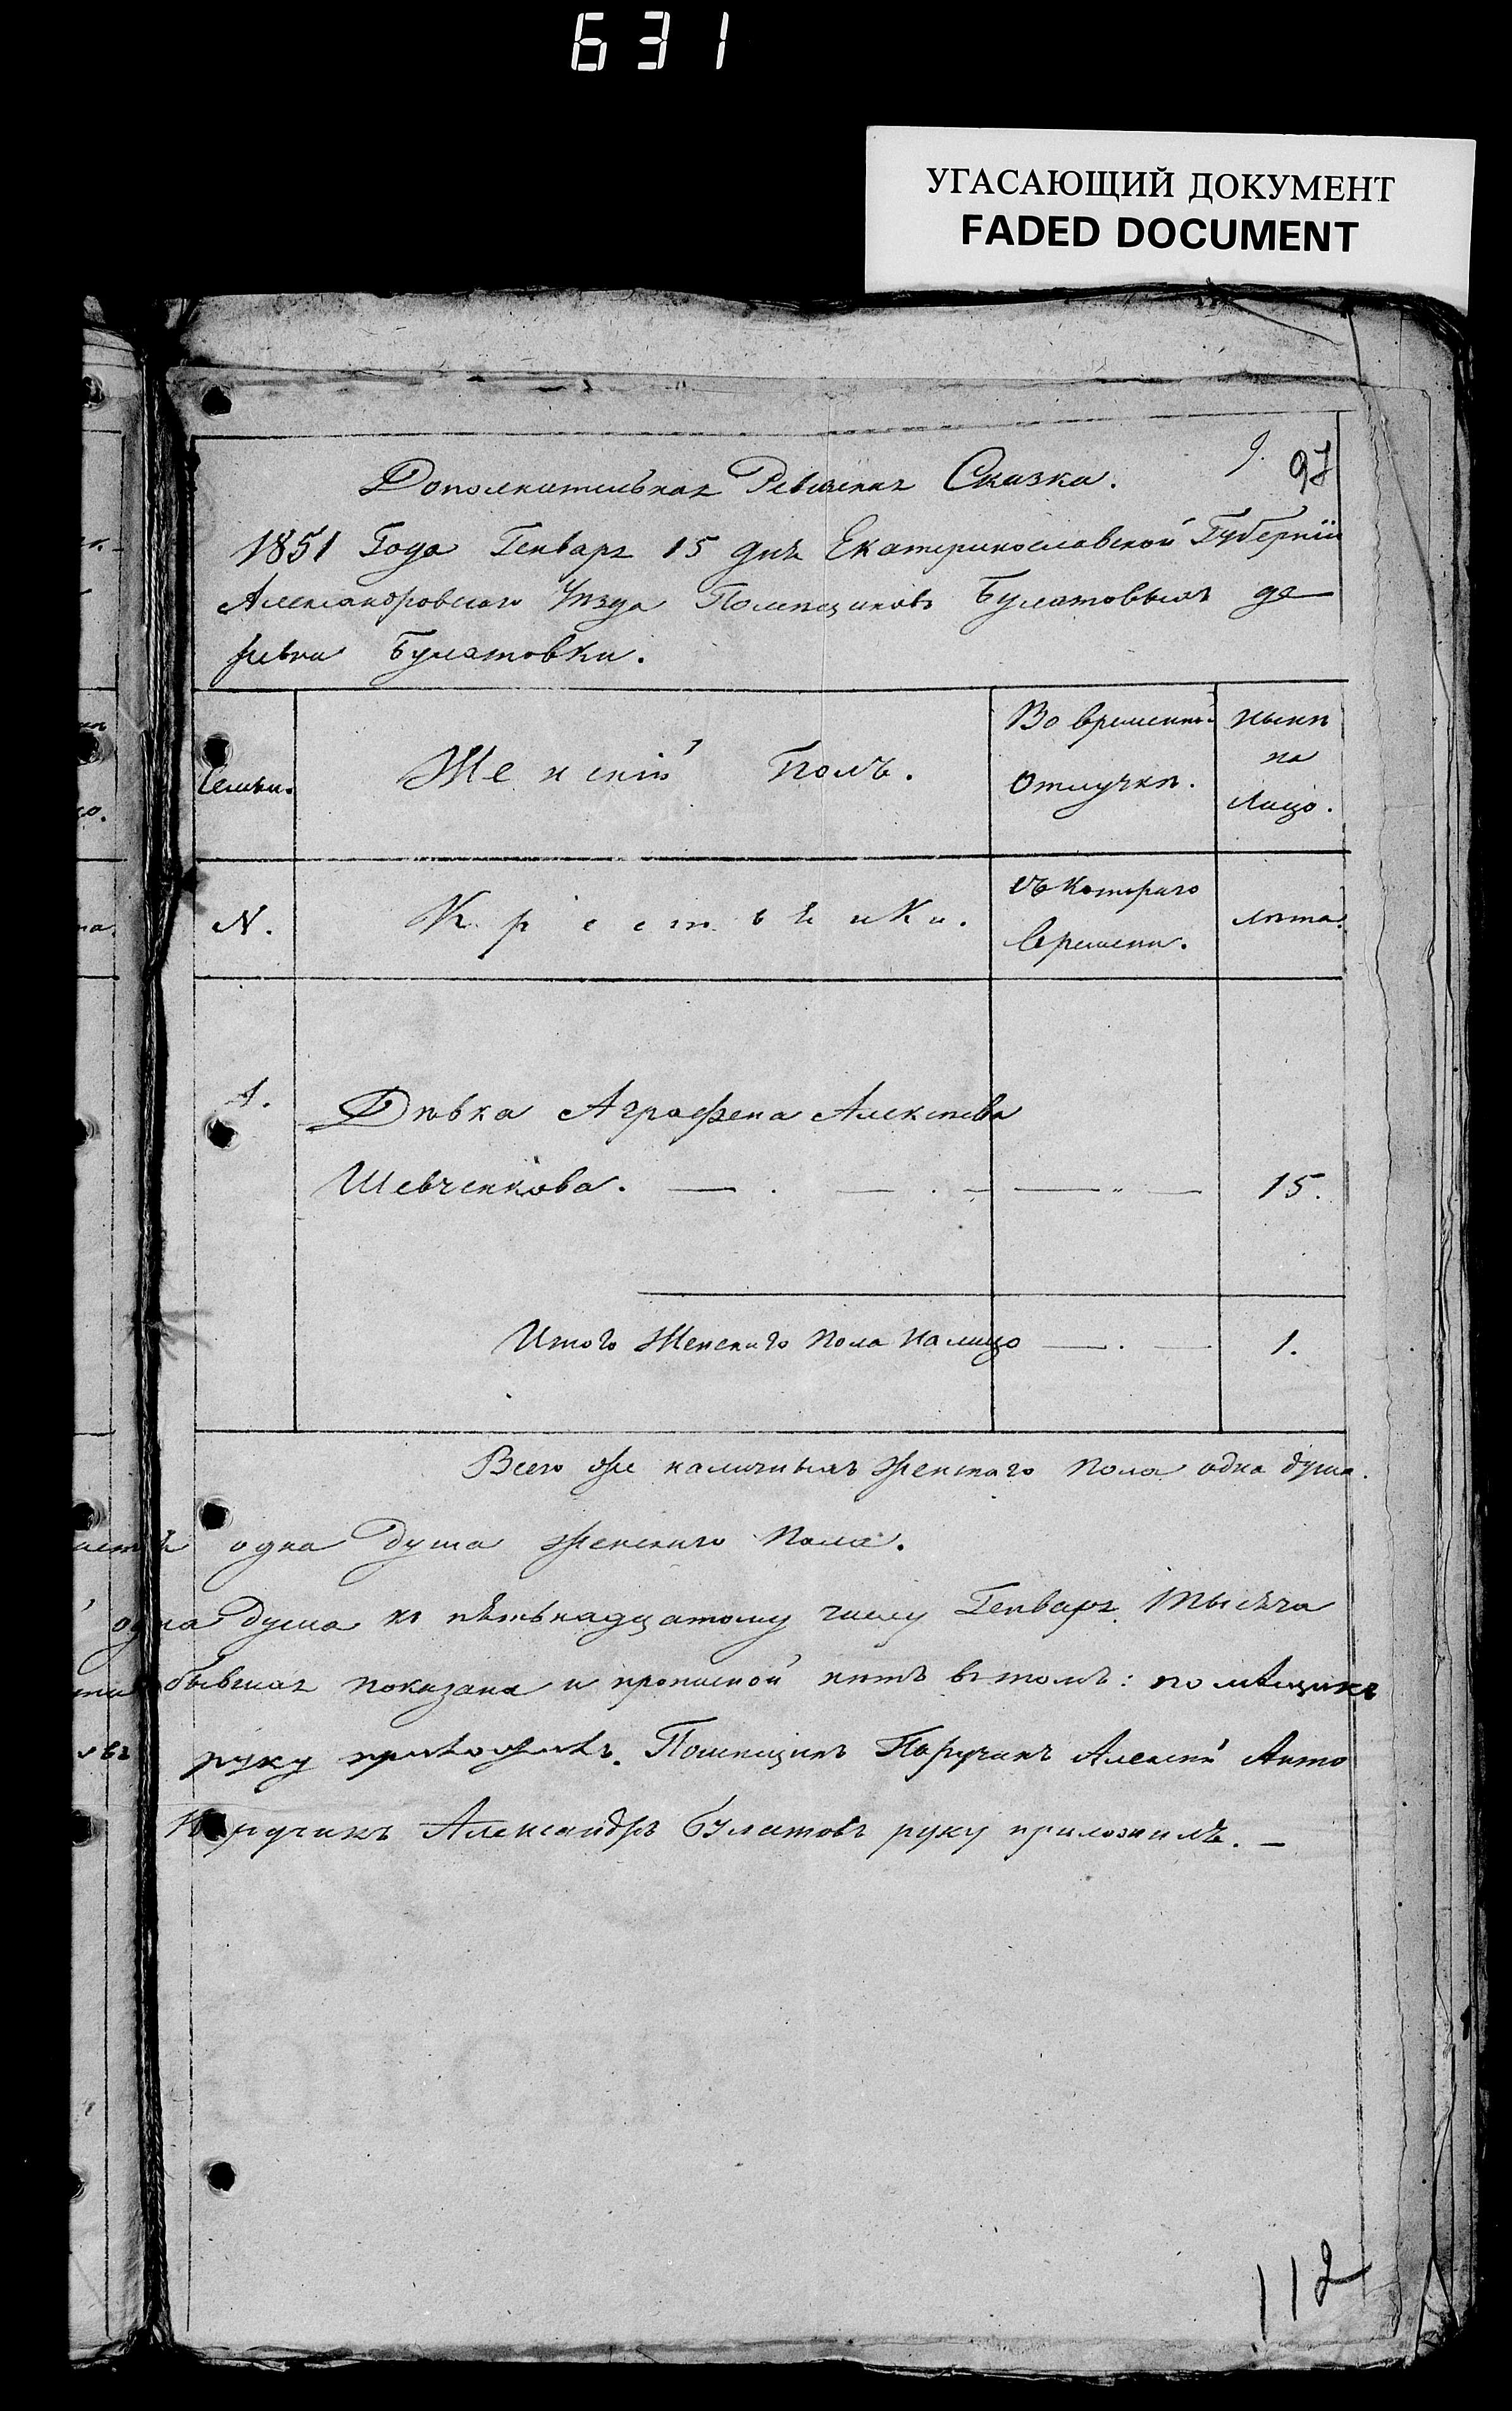 631
УГАСАЮЩИЙ ДОКУМЕНТ
FADED DOCUMENT
9.
97
Дополнительная Ревизская Сказка.
1851 Года Генваря 15 дня Екатеринославской Губерніи
Александровскаго Уѣзда Помѣщиковъ Булатовыхъ де
ревни Булатовки.
Семьи.
Женскій Полъ.
Во временной
Отлучкѣ.
Нынѣ
на
Лицо.
N.
Крестьянки.
Съ котораго
времени.
лѣта.
1.
Дѣвка Аграфена Алексѣева
Шевченкова. — . — . — — „ — 15.
Итого Женскаго Пола Налицо — . — 1.
Всего же наличныхъ женскаго пола одна душа.
одна душа женскаго пола.
одна душа къ пятьнадцатому числу Генваря Тысяча
бывшая показана и прописной нѣтъ въ томъ: помѣщикъ
руку приложилъ. Помѣщикъ Поручикъ Алексѣй Анто
Поручикъ Александръ Булатовъ руку приложилъ. —
112